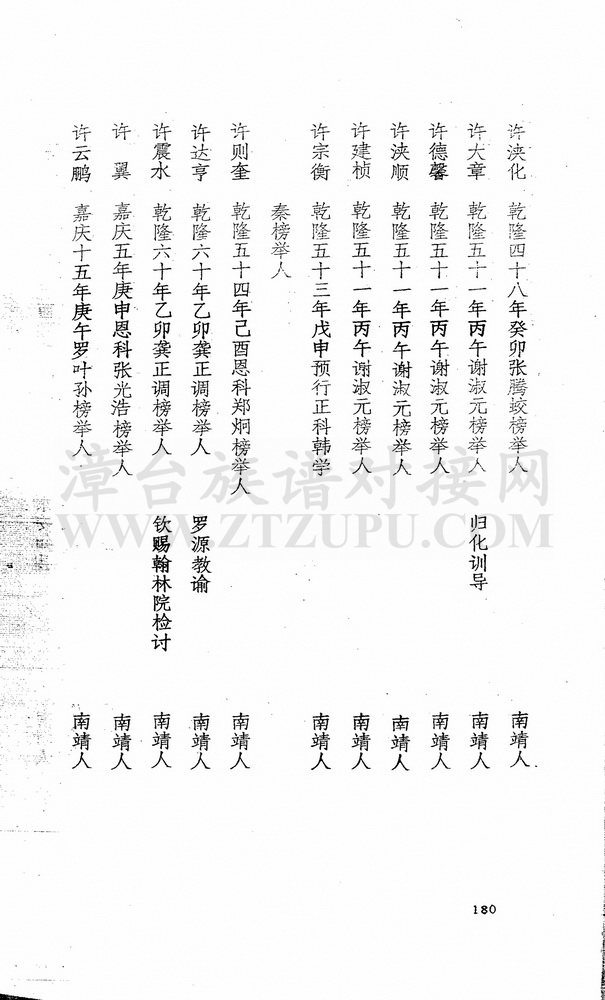 许浃化　乾隆四十八年癸卯张腾蛟榜举人　南靖人
许大章　乾隆五十一年丙午谢淑元榜举人　归化训导　南靖人
许德馨　乾隆五十一年丙午谢淑元榜举人　南靖人
许浃顺　乾隆五十一年丙午谢淑元榜举人　南靖人
许建桢　乾隆五十一年丙午谢淑元榜举人　南靖人
许宗衡　乾隆五十三年戊申预行正科韩学　南靖人
秦榜举人
许则奎　乾隆五十四年己酉恩科郑炯榜举人　南靖人
许达亨　乾隆六十年乙卯龚正调榜举人　罗源教谕　南靖人
许震水　乾隆六十年乙卯龚正调榜举人　钦赐翰林院检讨　南靖人
许　翼　嘉庆五年庚申恩科张光浩榜举人　南靖人
许云鹏　嘉庆十五年庚午罗叶孙榜举人　南靖人
180
漳台族谱对接网
WWW.ZTZUPU.COM